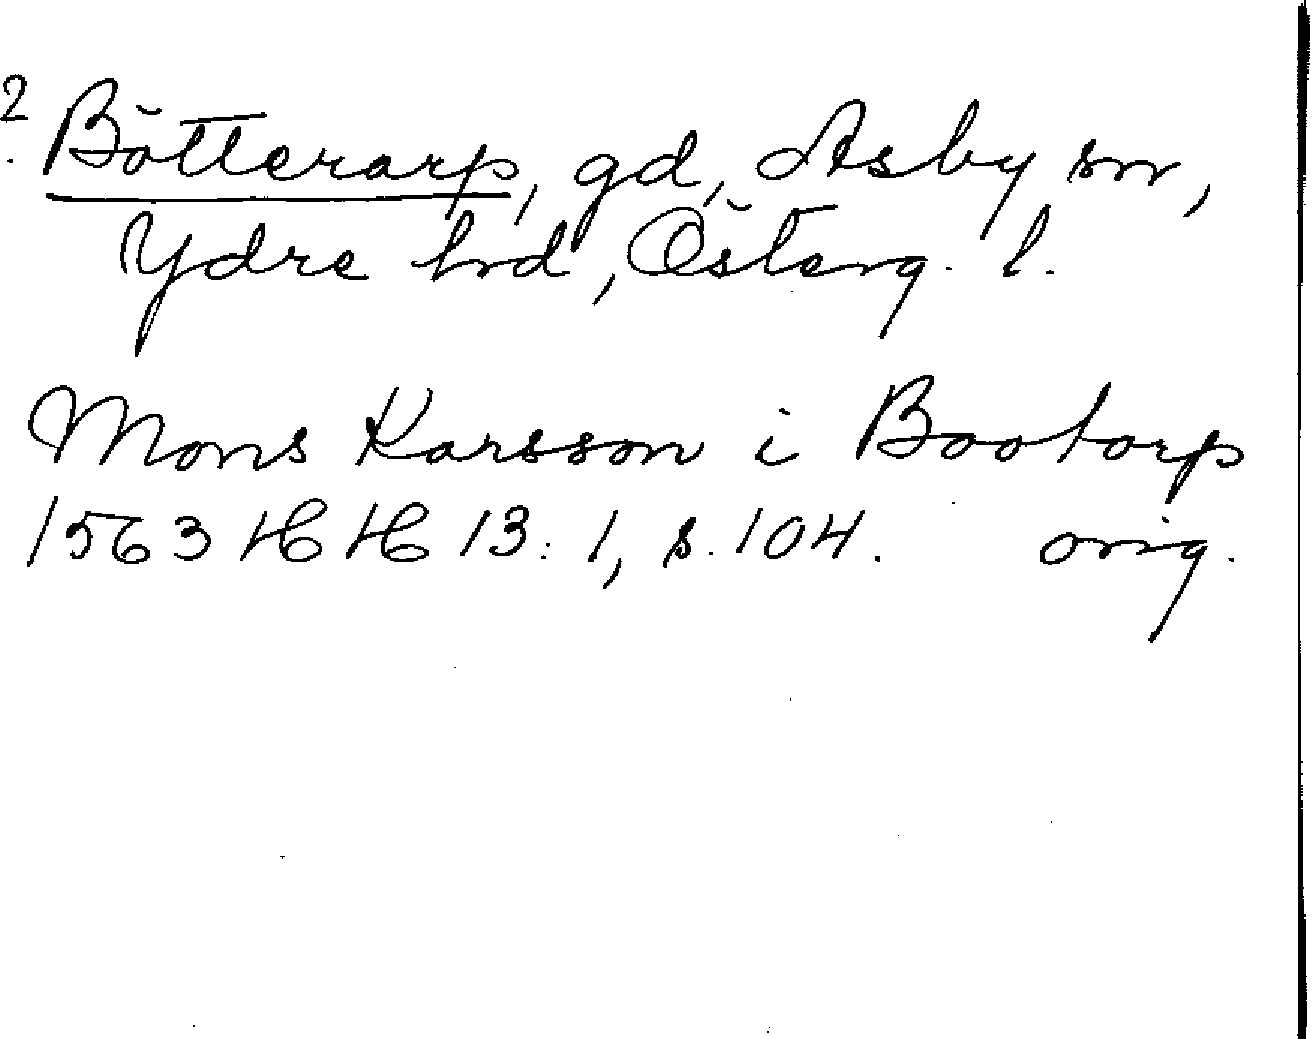 2. Bötterarp, gd, Asby sn,
Ydre hrd, Österg. l.
Mons Karsson i Bootorp
1563 HH 13:1, s. 104. orig.